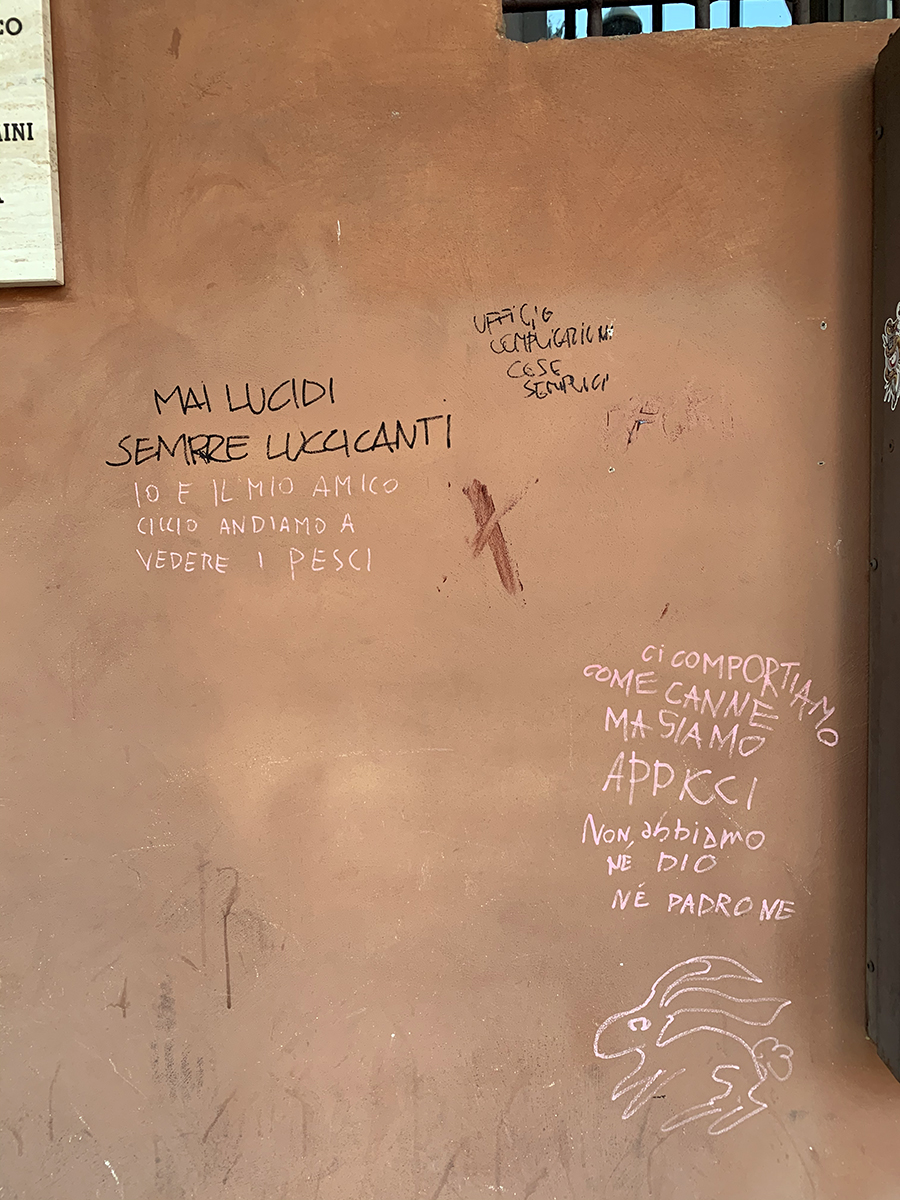 CO
AINI
A
UFFICIO
COMPLICAZIONI
COSE
SEMPLICI
MAI LUCIDI
SEMPRE LUCCICANTI
IO E IL MIO AMICO
CICCIO ANDIAMO A
VEDERE I PESCI
CI COMPORTIAMO
COME CANNE
MA SIAMO
APPICCI
NON abbiamo
NE DIO
NÉ PADRONE